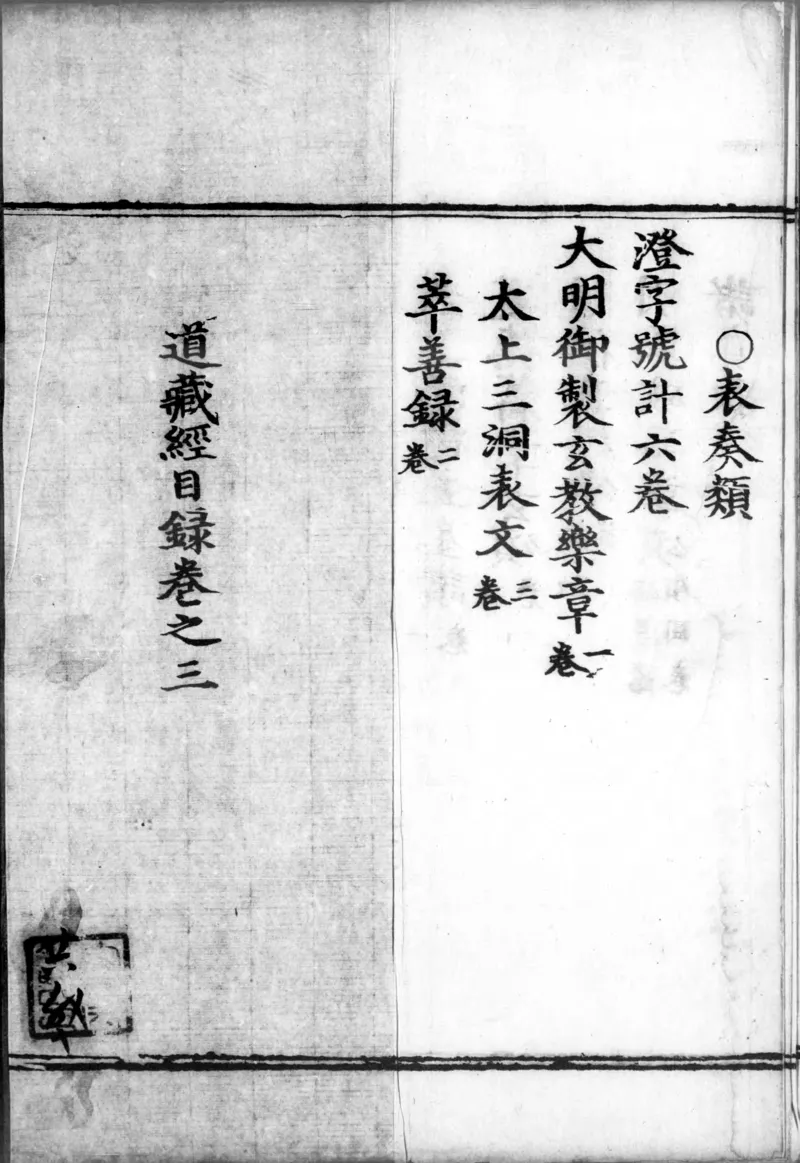 ○表奏類
澄字號計六卷
大明御製玄教樂章一卷
太上三洞表文三卷
萃善録二卷
道藏經目録卷之三